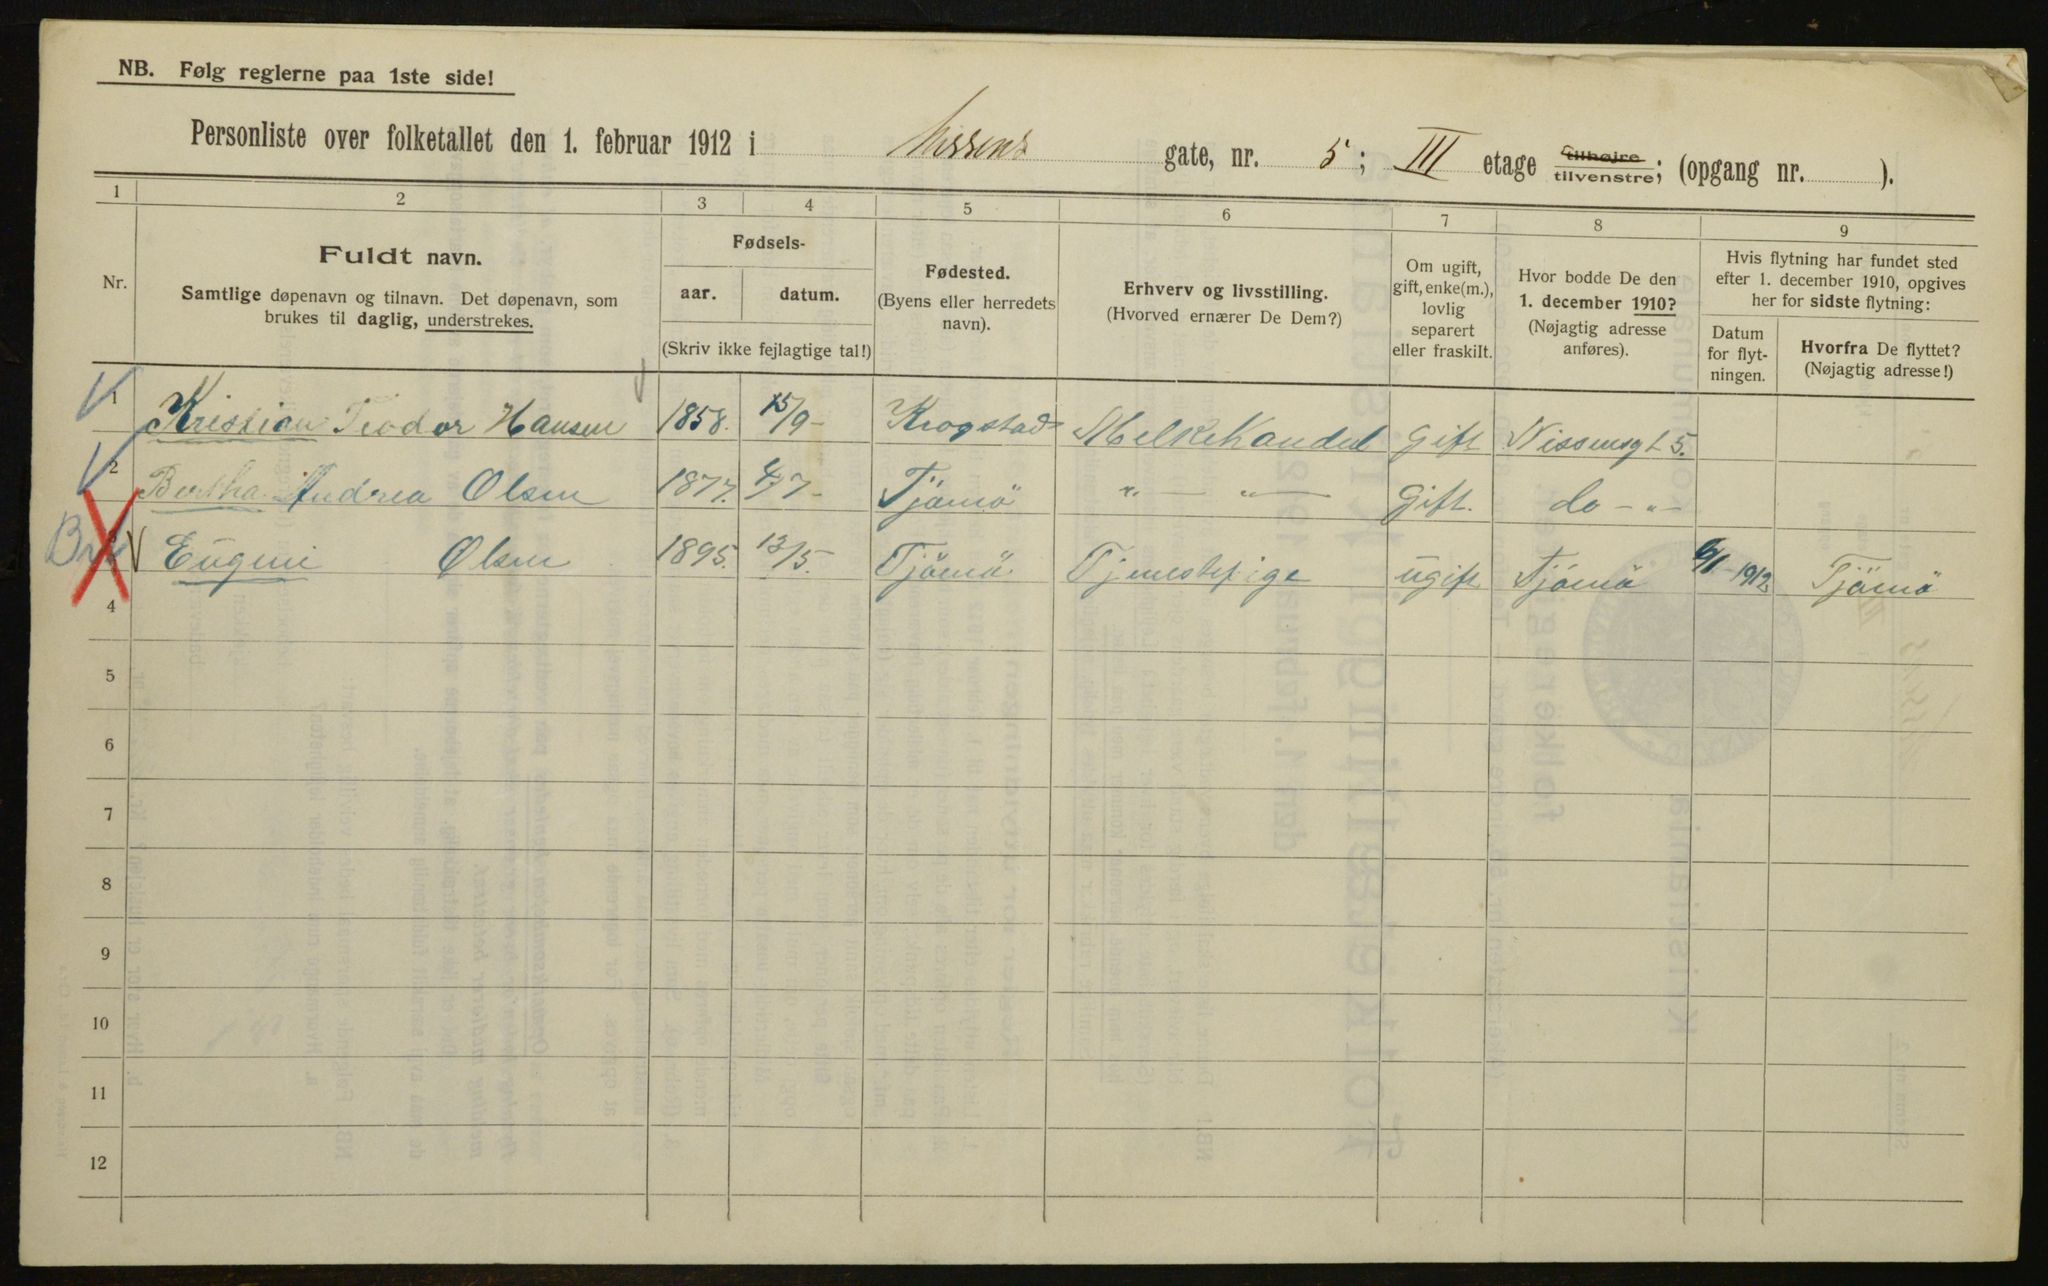 NB. Følg reglerne paa 1ste side!
Personliste over folketallet den 1. februar 1912 i Nissens gate, nr. 5; III etage tilhøjre tilvenstre; (opgang nr. ).
1 2 3 4 5 6 7 8 9
Nr.
Fuldt navn.
Samtlige døpenavn og tilnavn. Det døpenavn, som
brukes til daglig, understrekes.
Fødsels-
aar. datum.
(Skriv ikke fejlagtige tal!)
Fødested.
(Byens eller herredets
navn).
Erhverv og livsstilling.
(Hvorved ernærer De Dem?)
Om ugift,
gift, enke(m.),
lovlig
separert
eller fraskilt.
Hvor bodde De den
1. december 1910?
(Nøjagtig adresse
anføres).
Hvis flytning har fundet sted
efter 1. december 1910, opgives
her for sidste flytning:
Datum
for flyt-
ningen.
Hvorfra De flyttet?
(Nøjagtig adresse!)
1 Kristian Teodor Hansen 1858. 15/9 - Krogstad Melkehandel Gift Nissensgt 5.
2 Bertha Andrea Olsen 1877. 4/7 - Tjömö " — " — Gift. do - " -
3 Eugeni Olsen 1895. 13/5. Tjömö Tjenestepige ugift Tjömö 6/1 - 1912 Tjömö
4
5
6
7
8
9
10
11
12